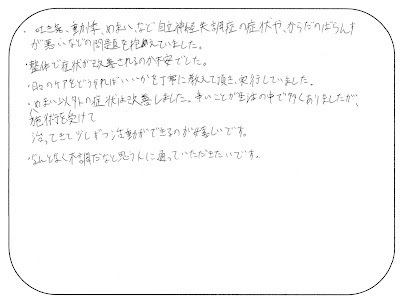 ・吐き気、動悸、めまい、など自立神経失調症の症状や、からだのばらんす
が悪いなどの問題を抱めえていました。
・整体で症状が改善されるのか不安でした。
・日々のケアをどうすればいいかを丁寧に教えて頂き、実行していました。
・めまい以外の症状は改善しました。辛いことが生活の中で多くありましたが、
施術を受けて
治ってきて少しずつ活動ができるのが嬉しいです。
・なんとなく不調だなと思う人に通っていただきたいです。